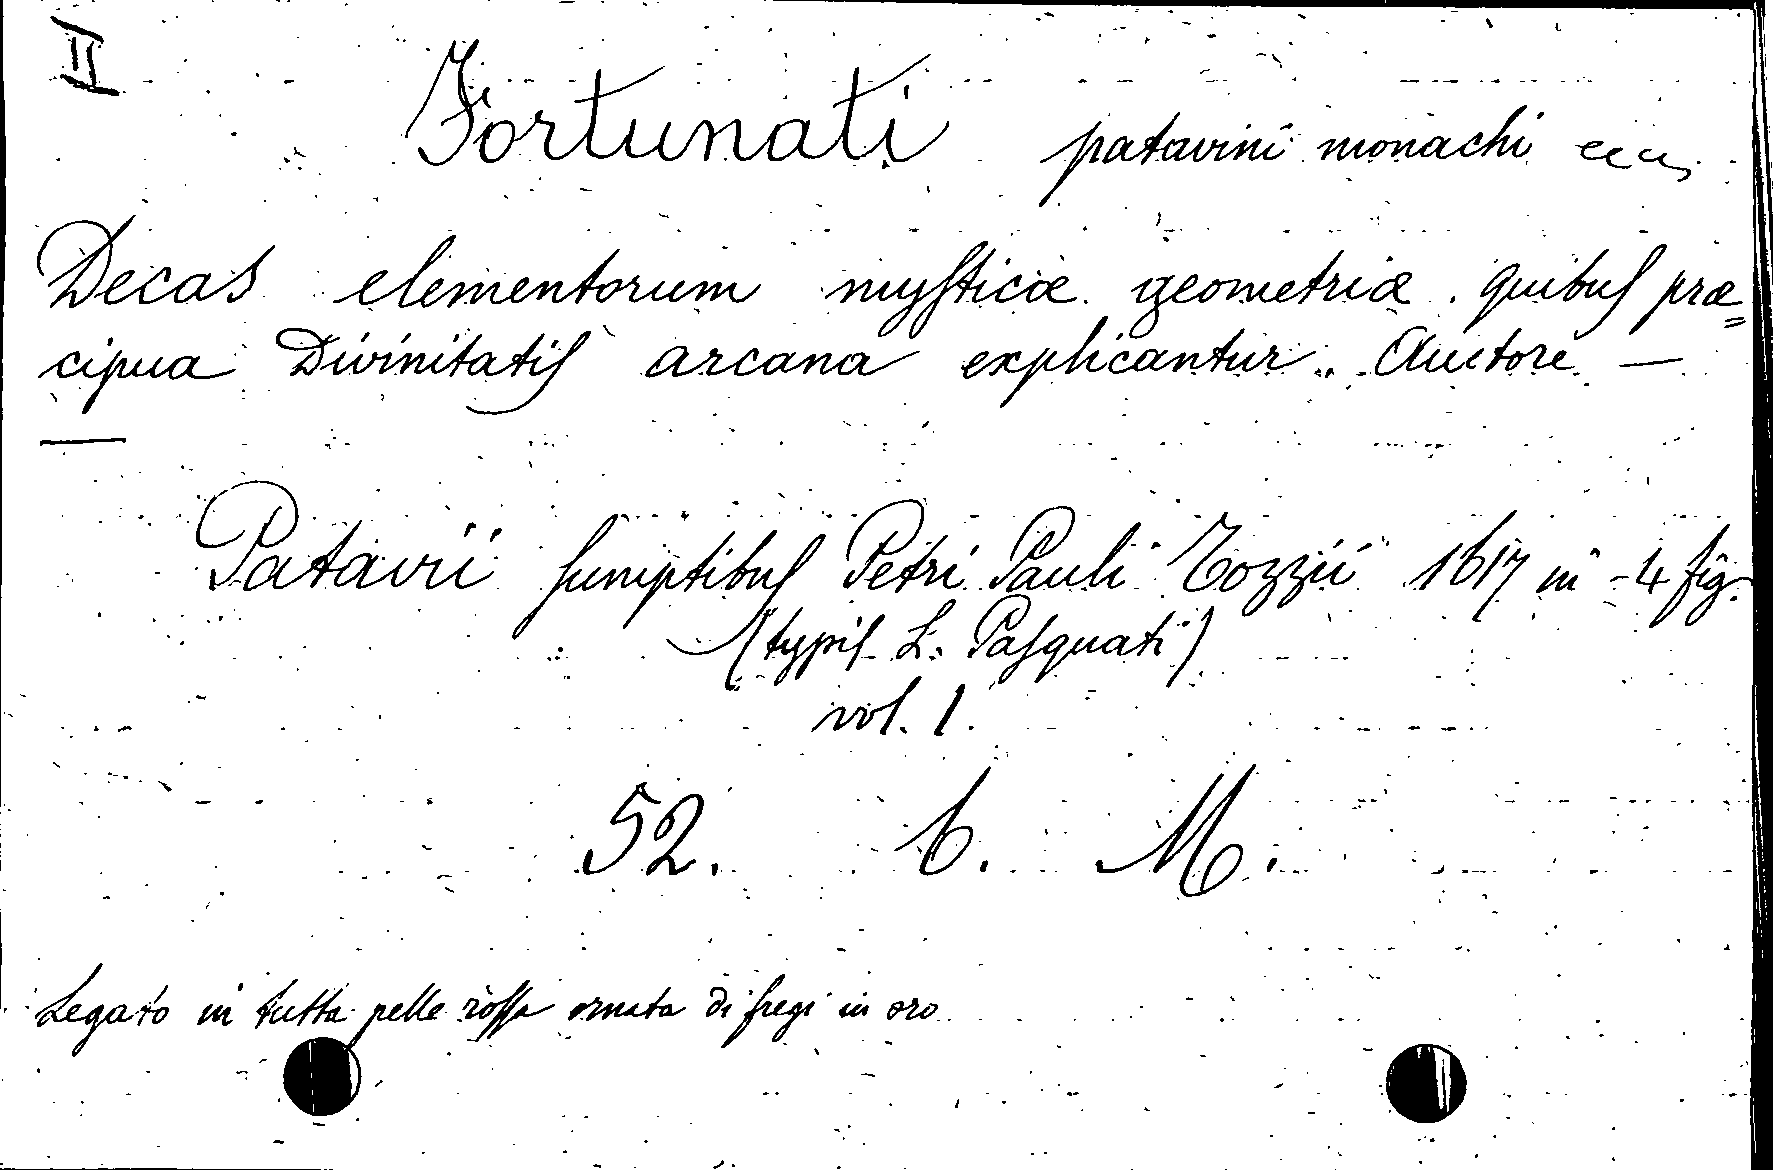 II
Fortunati patavini monachi ecc.
Decas elementorum mysticæ geometriæ quibus præ=
cipua Divinitatis arcana explicantur. Auctore —
—
Patavii sumptibus Petri Pauli Tozzii 1617 in-4 fig.
(typis L. Pasquati)
vol. 1.
52. b. M.
Legato in tutta pelle rossa ornata di fregi in oro